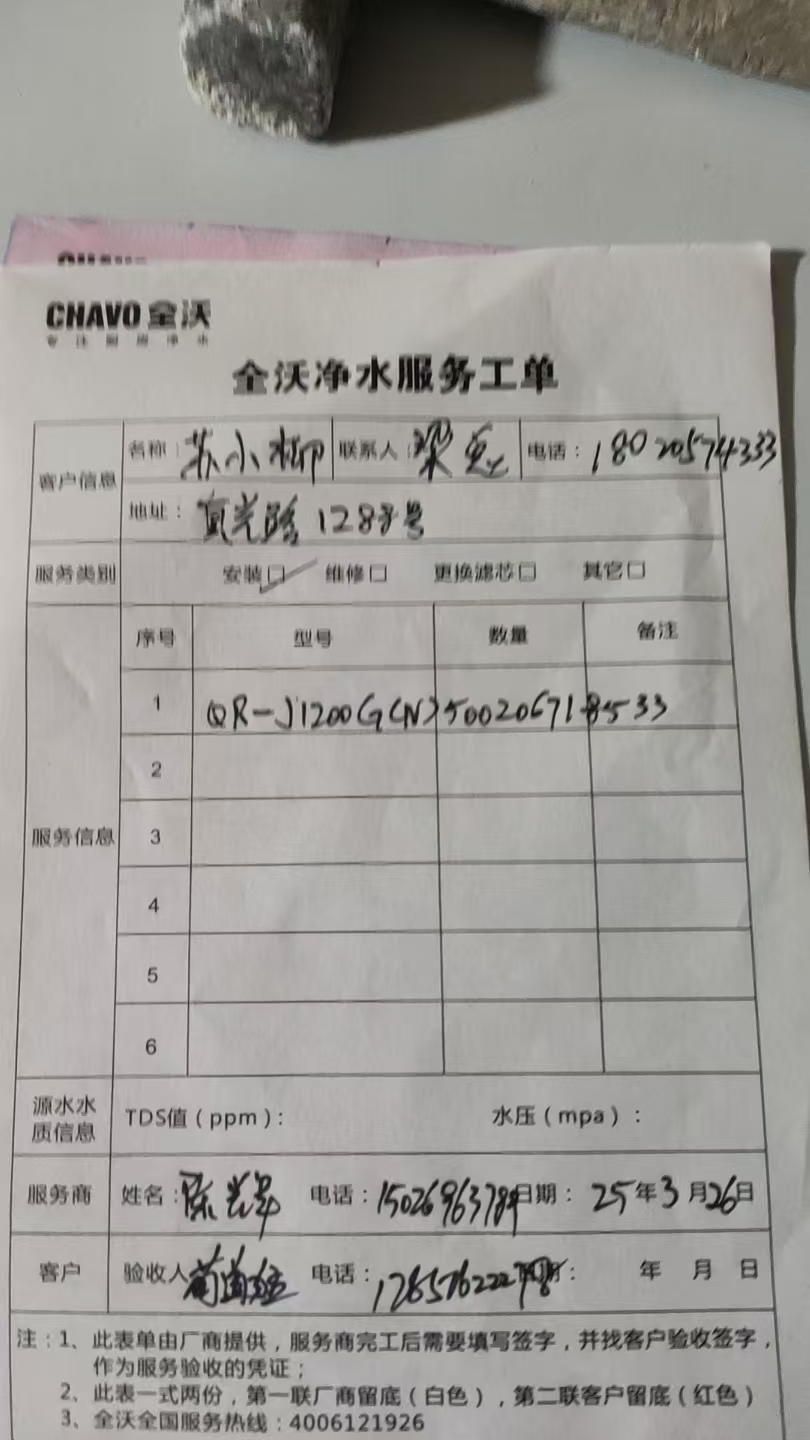 CHAVO 全沃
专注厨房净水
全沃净水服务工单
客户信息 名称：苏小柳 联系人：梁 电话：18020574333
地址：真光路1288号
服务类别 安装☑ 维修□ 更换滤芯□ 其它□
序号 型号 数量 备注
1 QR-J1200G(N) 500206718533
2
服务信息 3
4
5
6
源水水质信息 TDS值（ppm）： 水压（mpa）：
服务商 姓名：陈光 电话：15026963789 日期：25年3月26日
客户 验收人 电话： 年 月 日
注：1、此表单由厂商提供，服务商完工后需要填写签字，并找客户验收签字，
作为服务验收的凭证；
2、此表一式两份，第一联厂商留底（白色），第二联客户留底（红色）
3、全沃全国服务热线：4006121926